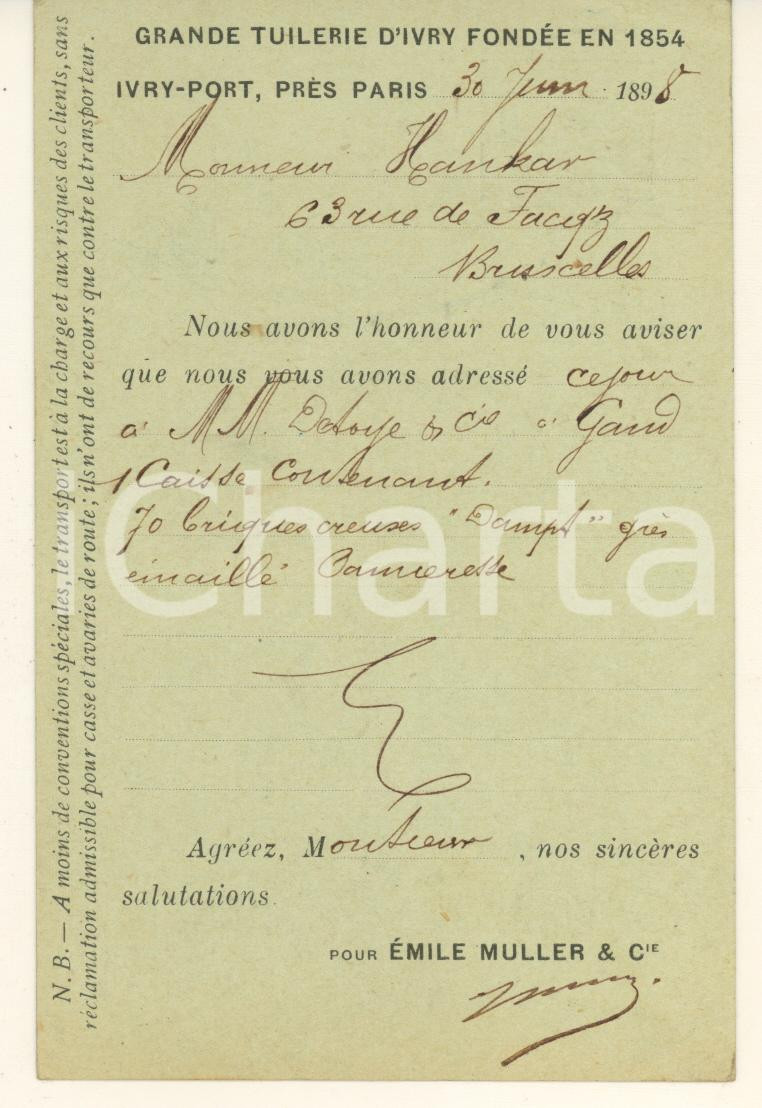 GRANDE TUILERIE D'IVRY FONDÉE EN 1854
IVRY-PORT, PRÈS PARIS 30 Juin 1898
Monsieur Hankar
63 rue de Facqz
Bruxcelles
Nous avons l'honneur de vous aviser
que nous vous avons adressé ce jour
à MM. & Cie à Gand
1 Caisse Contenant.
70 briques creuses "Dampt" grès
émaillé
Agréez, Monsieur, nos sincères
salutations.
POUR ÉMILE MULLER & CIE
N. B. — A moins de conventions spéciales, le transport est à la charge et aux risques des clients, sans
réclamation admissible pour casse et avaries de route; ils n'ont de recours que contre le transporteur.
Charta